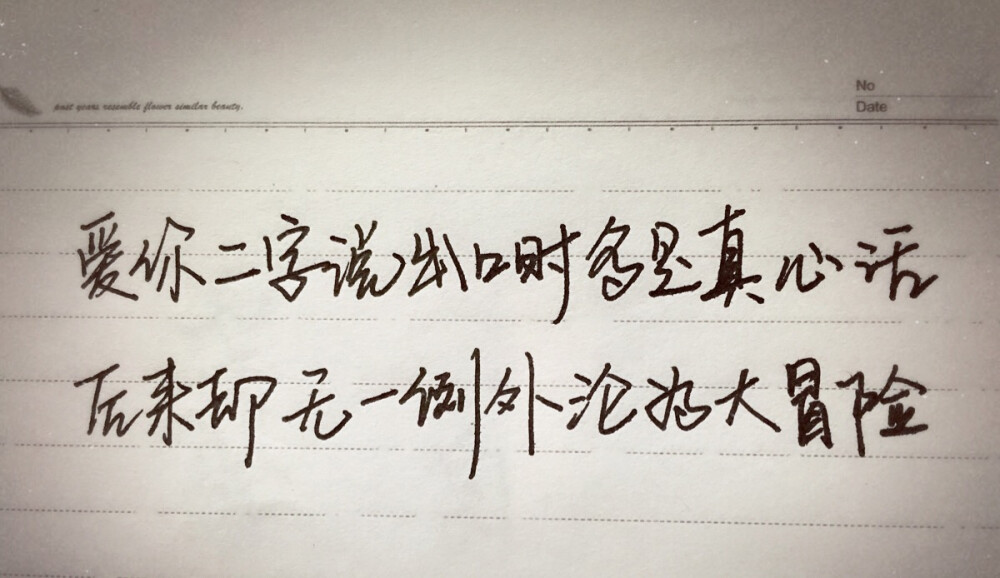 No
past years resemble flower similar beauty.
Date
爱你二字说出口时多是真心话
后来却无一例外沦为大冒险